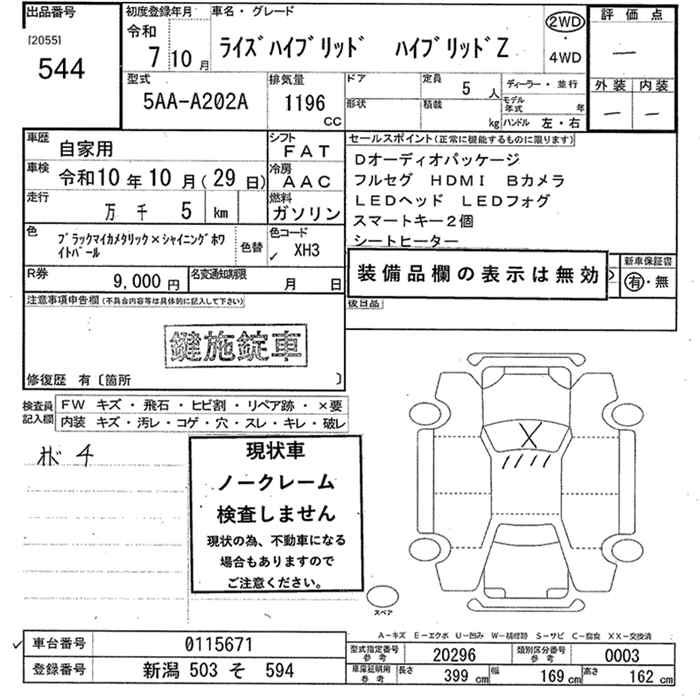 出品番号
[2055]
544
初度登録年月
令和 7 10 月
車名・グレード
ライズハイブリッド ハイブリッドZ
2WD
・
4WD
評価点
―
外装 内装
― ―
型式
5AA-A202A
排気量
1196
CC
ドア
形状
定員
5 人
積載
kg
ディーラー・並行
モデル年式 年
ハンドル 左・右
車歴
自家用
シフト
FAT
車検
令和10年10月(29日)
冷房
AAC
走行
万 千 5 km
燃料
ガソリン
セールスポイント(正常に機能するものに限ります)
Dオーディオパッケージ
フルセグ HDMI Bカメラ
LEDヘッド LEDフォグ
スマートキー2個
シートヒーター
色
ブラックマイカメタリック×シャイニングホワイトパール
色替
色コード
XH3
R券
9,000 円
名変通知期限
月 日
装備品欄の表示は無効
新車保証書
有・無
後日品
注意事項申告欄(不具合内容等は具体的に記入して下さい)
鍵施錠車
修復歴 有〔箇所 〕
検査員記入欄
FW キズ・飛石・ヒビ割・リペア跡・×要
内装 キズ・汚レ・コゲ・穴・スレ・キレ・破レ
現状車
ノークレーム
検査しません
現状の為、不動車になる
場合もありますので
ご注意ください。
X
スペア
A-キズ E-エクボ U-凹み W-補修跡 S-サビ C-腐食 XX-交換済
車台番号
0115671
登録番号
新潟 503 そ 594
型式指定番号
参考
20296
類別区分番号
参考
0003
車庫証明用
参考
長さ
399 cm
幅
169 cm
高さ
162 cm